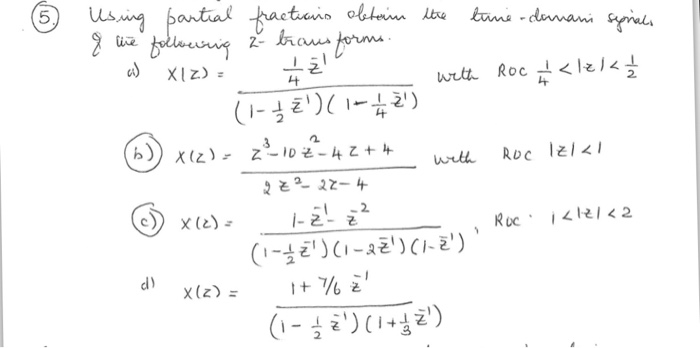 5. Using partial fractions obtain the time-domain signals
of the following z-transforms.
a) X(z) = (1/4 z^-1) / ((1 - 1/2 z^-1)(1 - 1/4 z^-1)) with ROC 1/4 < |z| < 1/2
b) X(z) = (z^3 - 10z^2 - 4z + 4) / (2z^2 - 2z - 4) with ROC |z| < 1
c) X(z) = (1 - z^-1 - z^-2) / ((1 - 1/2 z^-1)(1 - 2z^-1)(1 - z^-1)), ROC. 1 < |z| < 2
d) X(z) = (1 + 7/6 z^-1) / ((1 - 1/2 z^-1)(1 + 1/3 z^-1))